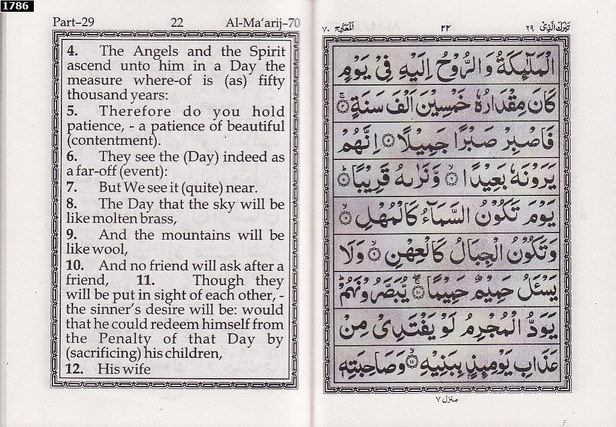 1786
Part-29 22 Al-Ma‘arij-70
4. The Angels and the Spirit
ascend unto him in a Day the
measure where-of is (as) fifty
thousand years:
5. Therefore do you hold
patience, - a patience of beautiful
(contentment).
6. They see the (Day) indeed as
a far-off (event):
7. But We see it (quite) near.
8. The Day that the sky will be
like molten brass,
9. And the mountains will be
like wool,
10. And no friend will ask after a
friend, 11. Though they
will be put in sight of each other, -
the sinner's desire will be: would
that he could redeem himself from
the Penalty of that Day by
(sacrificing) his children,
12. His wife
تبرك الذي ٢٩ ٢٢ المعارج ٧٠
الْمَلٰٓئِكَةُ وَالرُّوْحُ اِلَيْهِ فِيْ يَوْمٍ
كَانَ مِقْدَارُهٗ خَمْسِيْنَ اَلْفَ سَنَةٍ ۞٤
فَاصْبِرْ صَبْرًا جَمِيْلًا ۞٥ اِنَّهُمْ
يَرَوْنَهٗ بَعِيْدًا ۞٦ وَّنَرٰىهُ قَرِيْبًا ۞٧
يَوْمَ تَكُوْنُ السَّمَآءُ كَالْمُهْلِ ۞٨
وَتَكُوْنُ الْجِبَالُ كَالْعِهْنِ ۞٩ وَلَا
يَسْـَٔلُ حَمِيْمٌ حَمِيْمًا ۞١٠ يُّبَصَّرُوْنَهُمْ
يَوَدُّ الْمُجْرِمُ لَوْ يَفْتَدِيْ مِنْ
عَذَابِ يَوْمِئِذٍۢ بِبَنِيْهِ ۞١١ وَصَاحِبَتِهٖ
منزل ٧